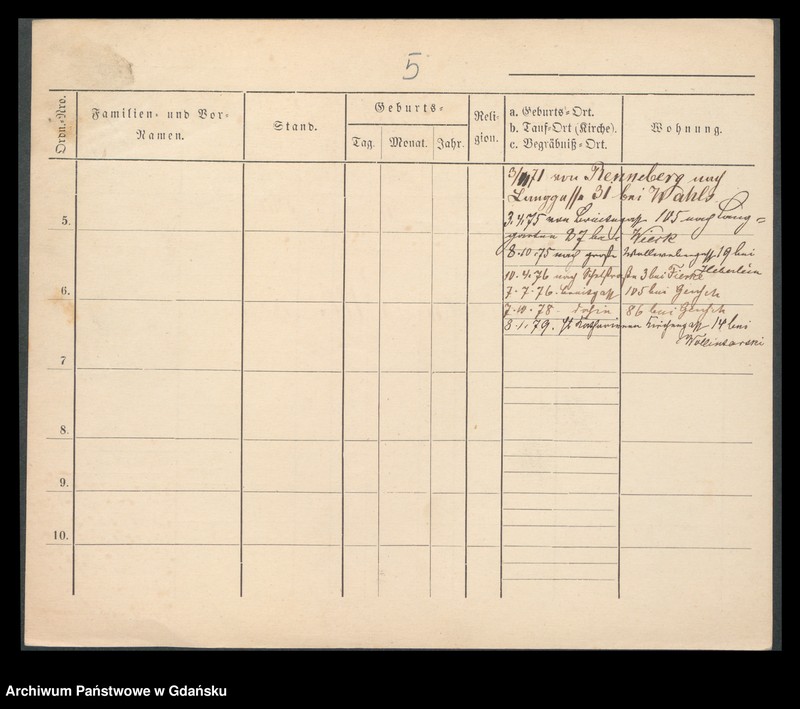 5
Ordn.-Nro.
Familien- und Vor-
Namen.
Stand.
Geburts-
Tag.
Monat.
Jahr.
Reli-
gion.
a. Geburts-Ort.
b. Tauf-Ort (Kirche).
c. Begräbniß-Ort.
Wohnung.
71 von Renneberg nach
Langgasse 31 bei Wahls
3.4.75 von Breitegass 105 nach Lang-
garten 87 bei Wierk
8.10.75 nach große Wollwebergass 19 bei
Heberlein
10.4.76 nach 3 bei
7.7.76. Breitgass 105 bei
7.10.78. 86 bei
8.1.79. St Katharinen Kirchengass 14 bei
5.
6.
7
8.
9.
10.
Archiwum Państwowe w Gdańsku